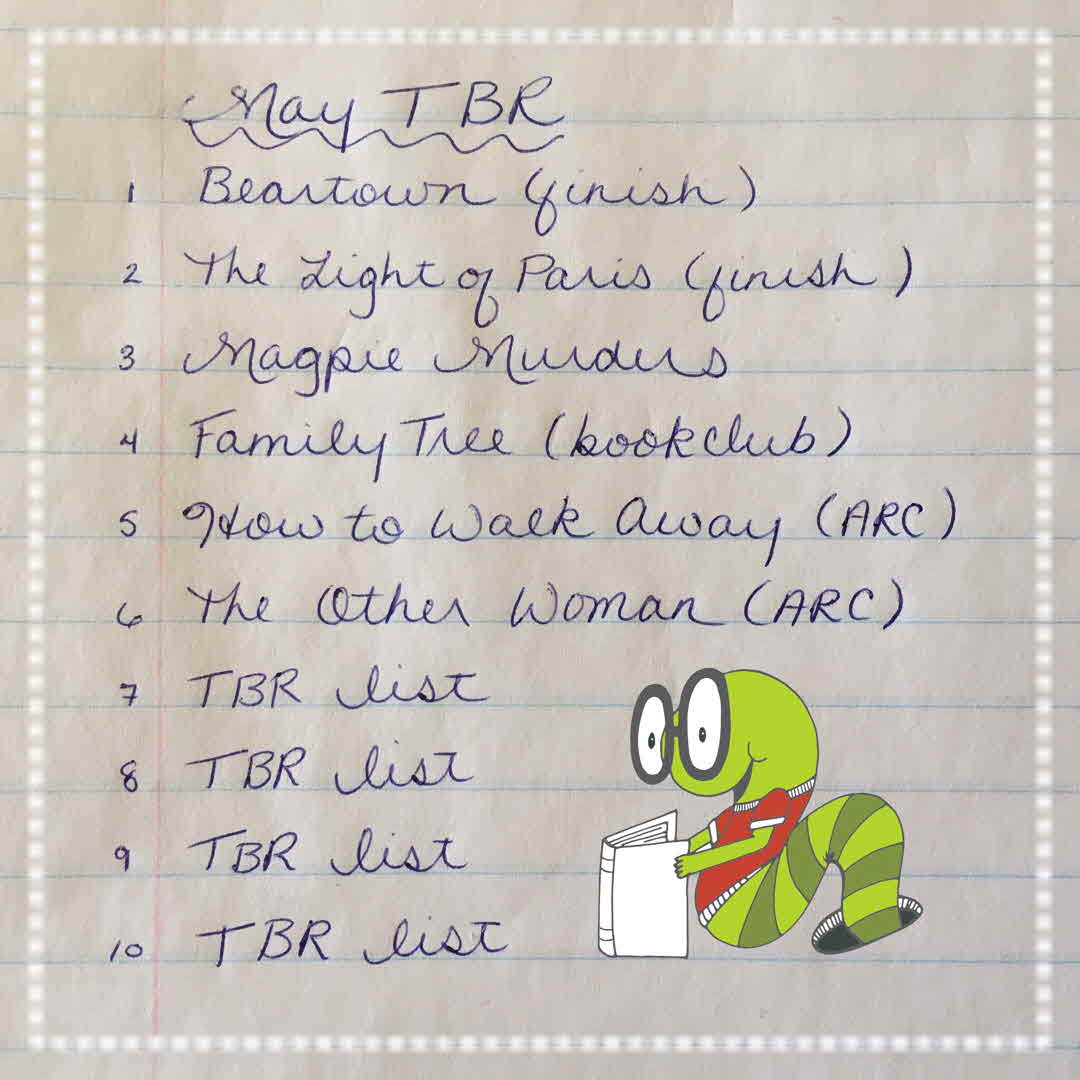 May TBR
1 Beartown (finish)
2 The Light of Paris (finish)
3 Magpie Murders
4 Family Tree (bookclub)
5 How to Walk Away (ARC)
6 The Other Woman (ARC)
7 TBR list
8 TBR list
9 TBR list
10 TBR list